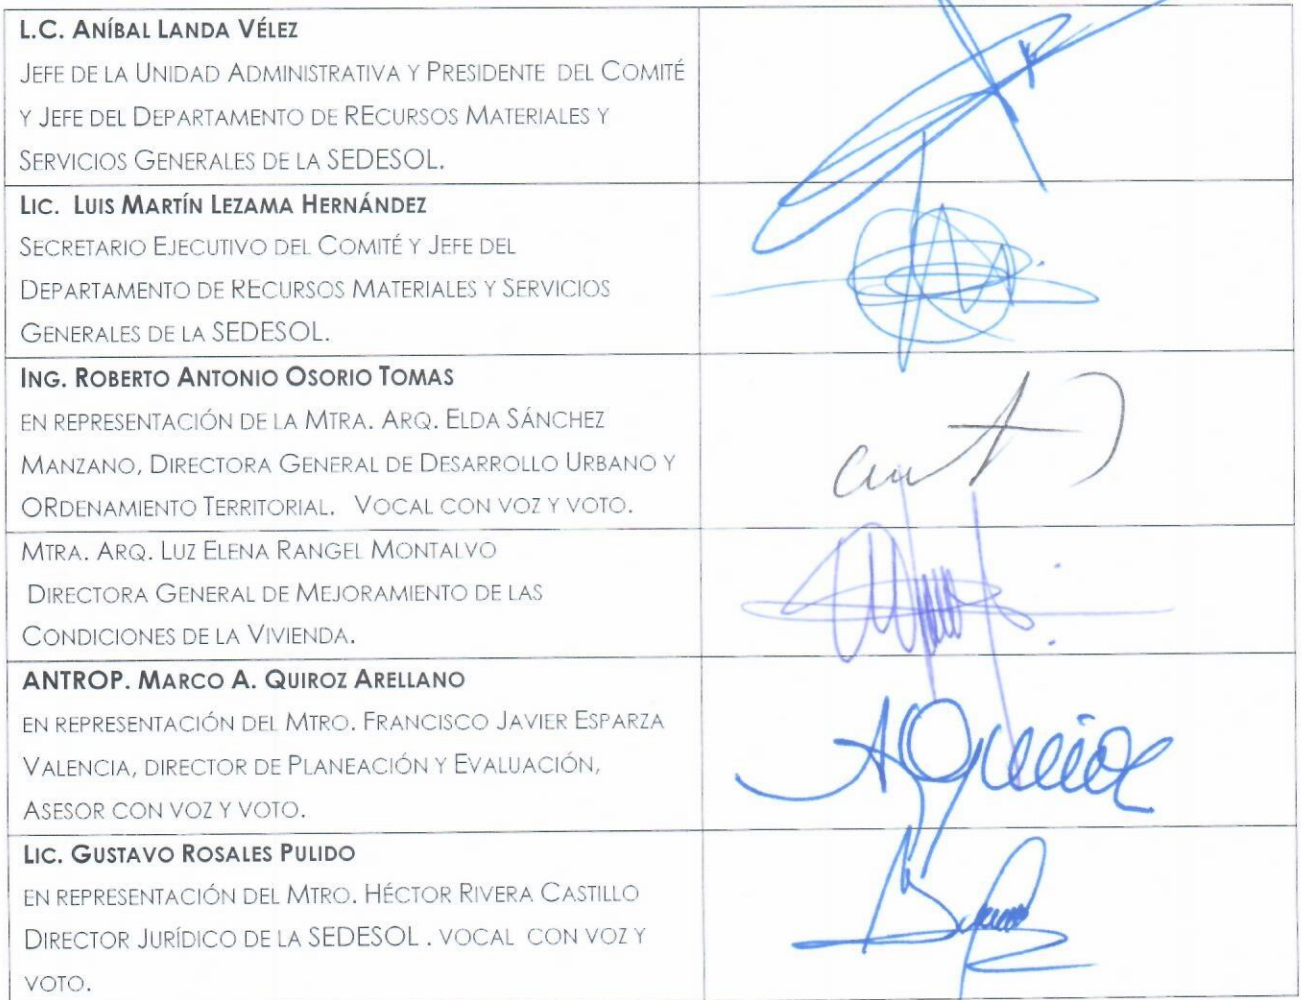 L.C. ANÍBAL LANDA VÉLEZ
JEFE DE LA UNIDAD ADMINISTRATIVA Y PRESIDENTE DEL COMITÉ
Y JEFE DEL DEPARTAMENTO DE RECURSOS MATERIALES Y
SERVICIOS GENERALES DE LA SEDESOL.
LIC. LUIS MARTÍN LEZAMA HERNÁNDEZ
SECRETARIO EJECUTIVO DEL COMITÉ Y JEFE DEL
DEPARTAMENTO DE RECURSOS MATERIALES Y SERVICIOS
GENERALES DE LA SEDESOL.
ING. ROBERTO ANTONIO OSORIO TOMAS
EN REPRESENTACIÓN DE LA MTRA. ARQ. ELDA SÁNCHEZ
MANZANO, DIRECTORA GENERAL DE DESARROLLO URBANO Y
ORDENAMIENTO TERRITORIAL. VOCAL CON VOZ Y VOTO.
MTRA. ARQ. LUZ ELENA RANGEL MONTALVO
DIRECTORA GENERAL DE MEJORAMIENTO DE LAS
CONDICIONES DE LA VIVIENDA.
ANTROP. MARCO A. QUIROZ ARELLANO
EN REPRESENTACIÓN DEL MTRO. FRANCISCO JAVIER ESPARZA
VALENCIA, DIRECTOR DE PLANEACIÓN Y EVALUACIÓN,
ASESOR CON VOZ Y VOTO.
LIC. GUSTAVO ROSALES PULIDO
EN REPRESENTACIÓN DEL MTRO. HÉCTOR RIVERA CASTILLO
DIRECTOR JURÍDICO DE LA SEDESOL . VOCAL CON VOZ Y
VOTO.